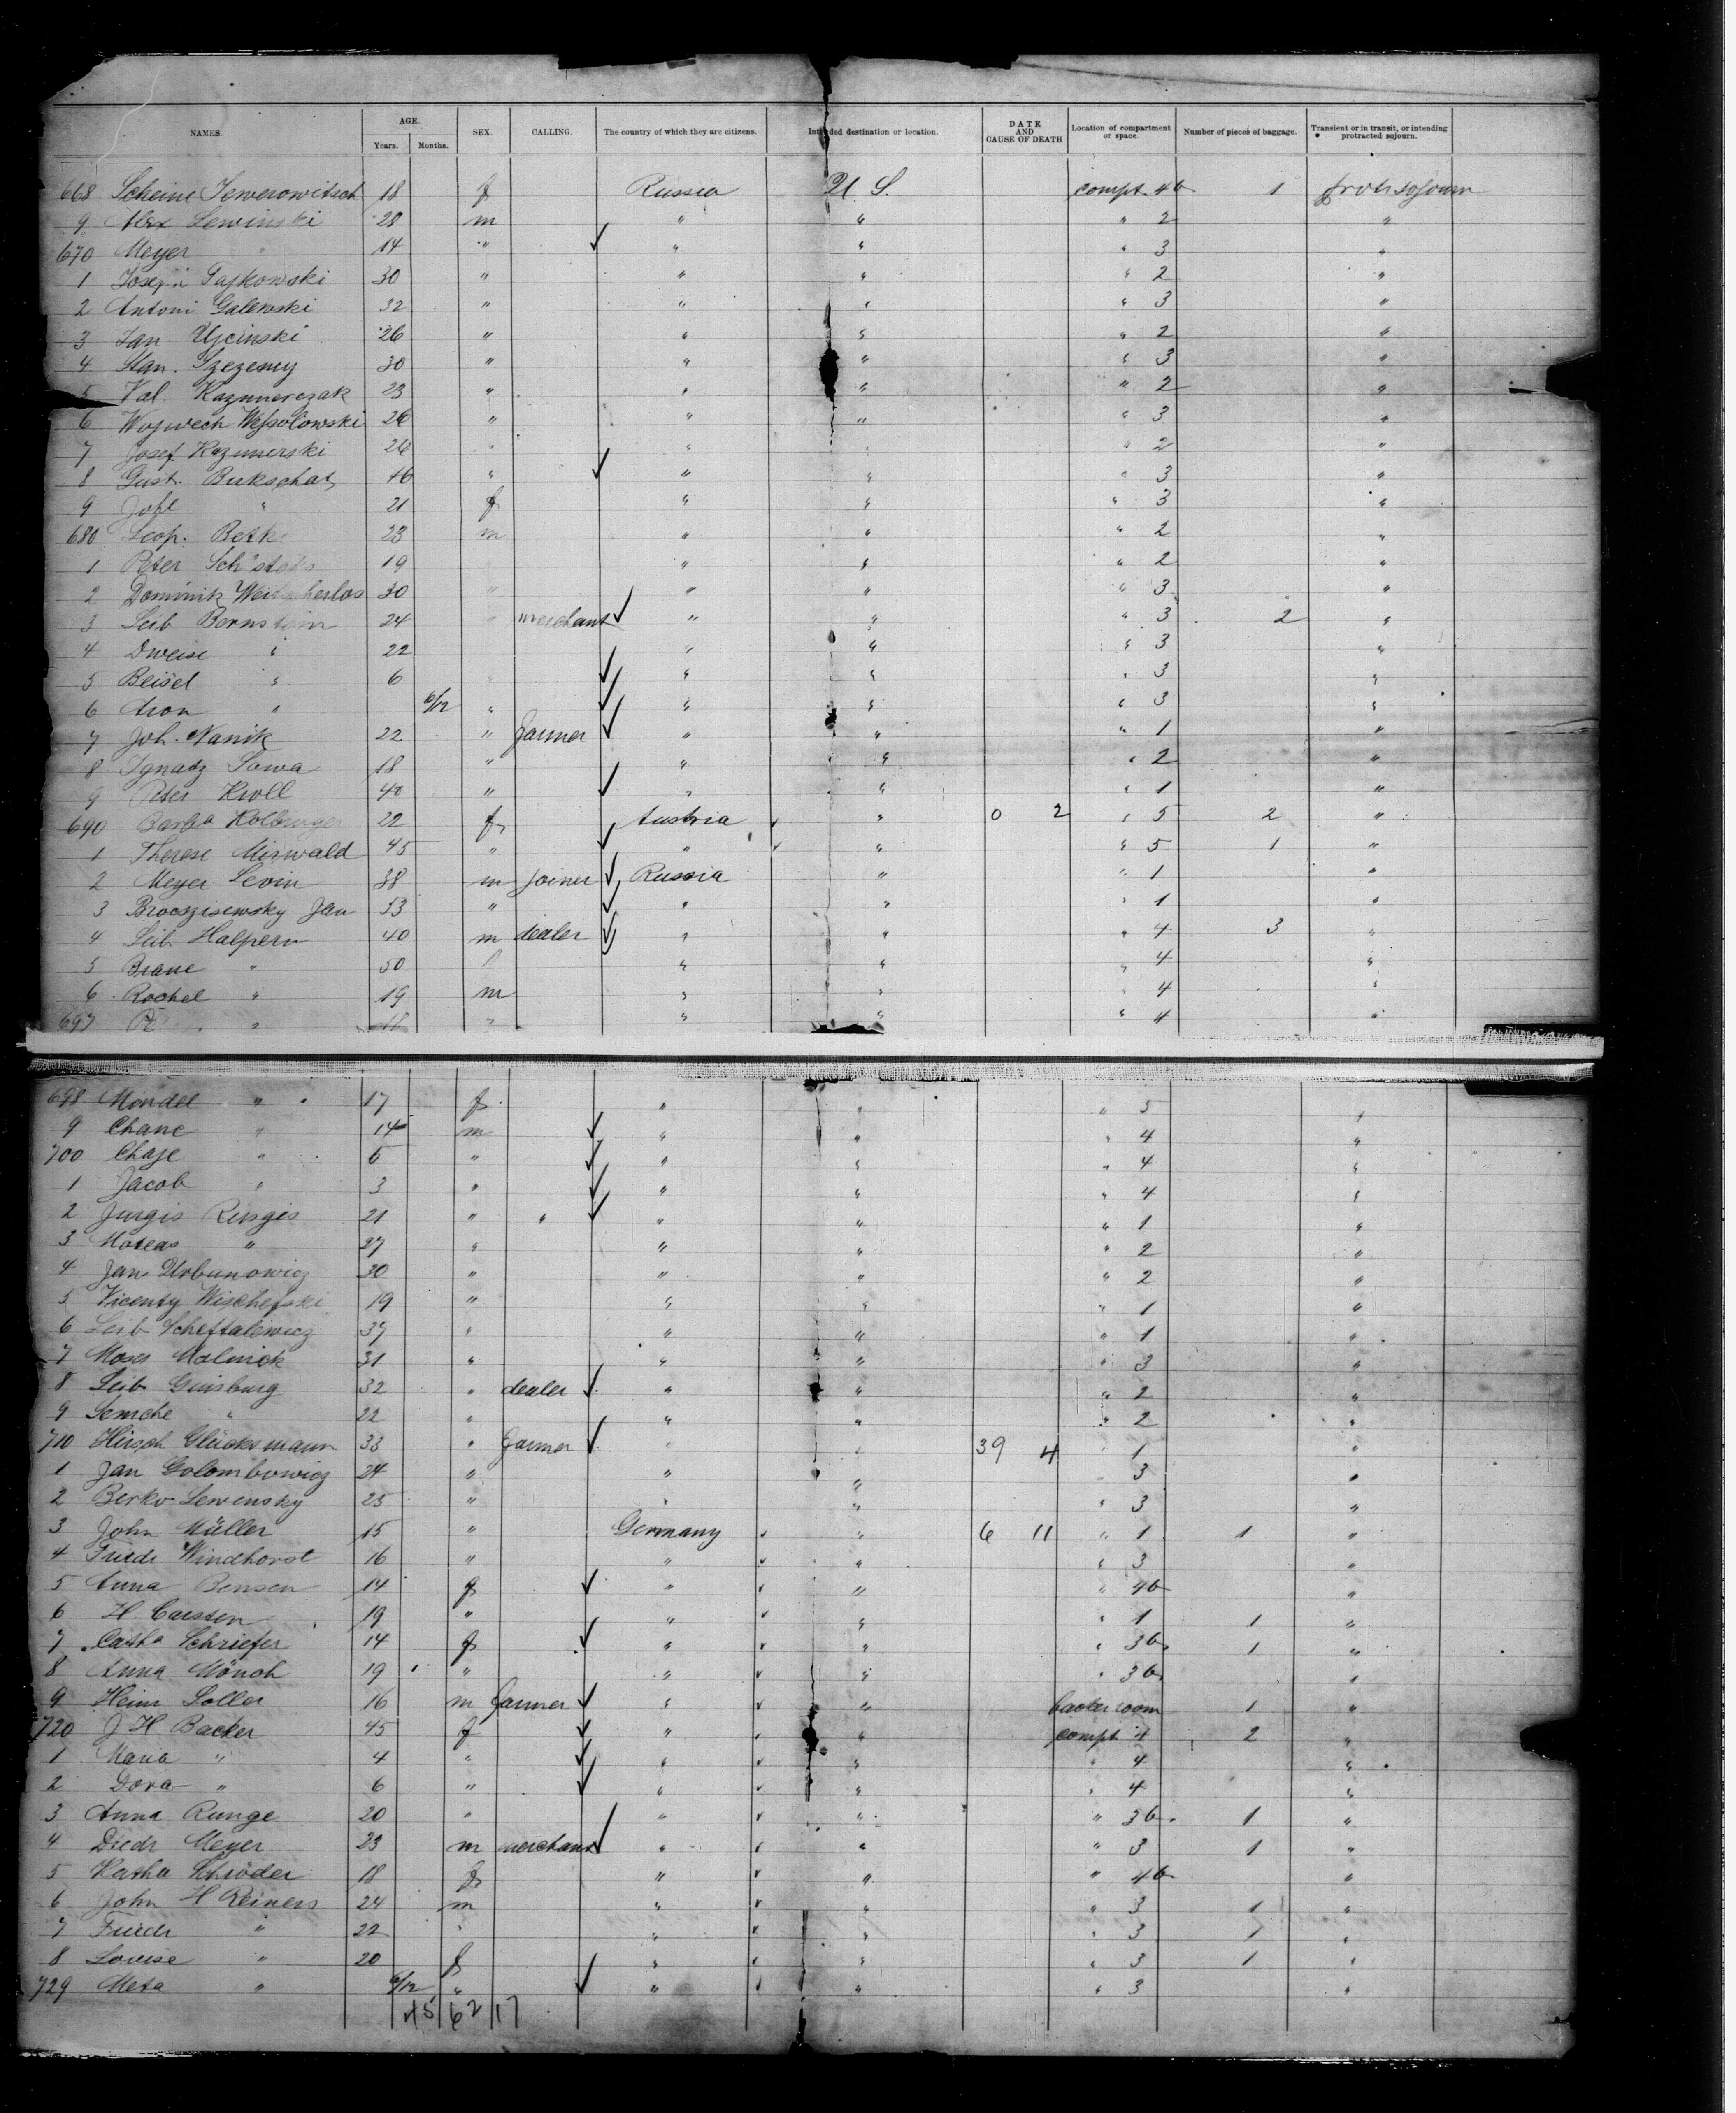 NAMES. AGE. Years. Months. SEX. CALLING. The country of which they are citizens. Intended destination or location. DATE AND CAUSE OF DEATH Location of compartment or space. Number of pieces of baggage. Transient or in transit, or intending protracted sojourn.
668 Scheine 18 f Russia U. S. compt. 4b 1 prot sojourn
9 Alex Lewinski 28 m " " " 2 "
670 Meyer " 14 " " " " 3 "
1 30 " " " " 2 "
2 Antoni Galewski 32 " " " " 3 "
3 Jan Ujcinski 26 " " " " 2 "
4 Stan. Szezesny 30 " " " " 3 "
5 Val. Kazmierczak 23 " " " " 2 "
6 Wojwech 26 " " " " 3 "
7 Josef Kazmierski 26 " " " " 2 "
8 Gust. Bukschat 46 " " " " 3 "
9 " 21 f " " " 3 "
680 Leop. 23 m " " " 2 "
1 Peter 19 " " " " 2 "
2 Dominik 30 " " " " 3 "
3 Leib Bernstein 24 " merchant " " " 3 2 "
4 Dweise " 22 " " " 3 "
5 Beisel " 6 " " " " 3 "
6 Aron " 6/12 " " " " 3 "
7 Joh. Nanik 22 " farmer " " " 1 "
8 Ignatz Sowa 18 " " " " 2 "
9 Peter Kroll 40 " " " " 1 "
690 Barba 22 f Austria " 0 2 " 5 2 "
1 Therese Miswald 45 " " " " 5 1 "
2 Meyer Levin 38 m joiner Russia " " 1 "
3 Jan 33 " " " " 1 "
4 Leib Halpern 40 m dealer " " " 4 3 "
5 Brane " 50 f " " " 4 "
6 Rochel " 19 m " " " 4 "
697 " 18 " " " " 4 "
698 Mendel " 17 f " " " 5 "
9 Chane " 14 m " " " 4 "
700 Chaje " 5 " " " " 4 "
1 Jacob " 3 " " " " 4 "
2 Jurgis Rusges 21 " " " " " 1 "
3 Mateas " 27 " " " " 2 "
4 Jan Urbanowicz 30 " " " " 2 "
5 Vicenty Wischefski 19 " " " " 1 "
6 Leib Scheftalewicz 37 " " " " 1 "
7 Moses Malnick 31 " " " " 3 "
8 Leib Ginsburg 32 " dealer " " " 2 "
9 Semche " 22 " " " " 2 "
710 Hirsch Glücksmann 33 " farmer " " 39 4 " 1 "
1 Jan Golombowicz 24 " " " 3 "
2 Berko Lewinsky 25 " " " " 3 "
3 John Müller 15 " Germany " 6 11 " 1 1 "
4 Friedr Windhorst 16 " " " " 3 "
5 Anna Bensen 14 f " " " 4b "
6 H. Carsten 19 " " " " 1 1 "
7 Catha Schriefer 14 f " " " 3b 1 "
8 Anna Mönch 19 " " " " 3b "
9 Heinr Soller 16 m farmer " " room 1 "
720 J H Backer 45 f " " compt 4 2 "
1 Maria " 4 " " " " 4 "
2 Dora " 6 " " " " 4 "
3 Anna Runge 20 " " " " 3b 1 "
4 Diedr Meyer 23 m merchant " " " 3 1 "
5 Katha Schröder 18 f " " " 4b "
6 John H Reiners 24 m " " " 3 1 "
7 Friedr " 22 " " " " 3 1 "
8 Louise " 20 f " " " 3 1 "
729 Meta " 6/12 " " " " 3 "
45 62 17